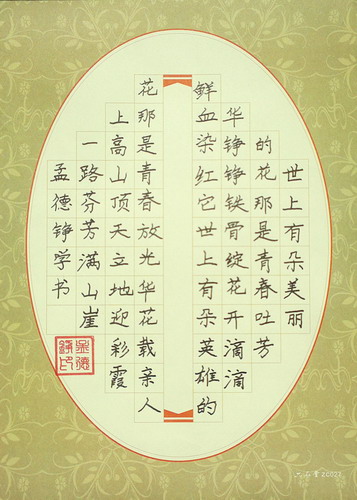 世上有朵美丽
的花那是青春吐芳
华铮铮铁骨绽花开滴滴
鲜血染红它世上有朵英雄的
花那是青春放光华花载亲人
上高山顶天立地迎彩霞
一路芬芳满山崖
孟德铮学书